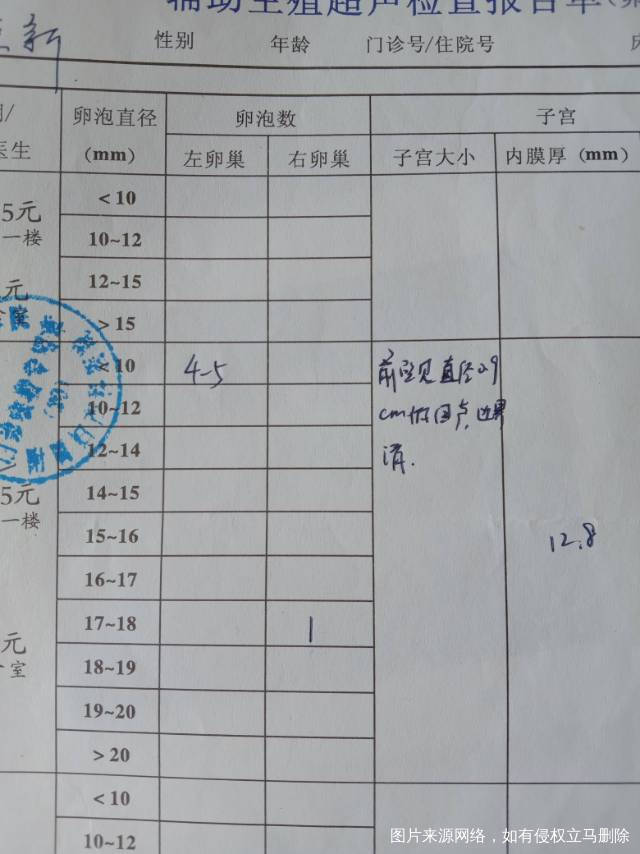 辅助生殖超声检查报告单
新
性别 年龄 门诊号/住院号
卵泡直径 (mm) 卵泡数 子宫
医生 左卵巢 右卵巢 子宫大小 内膜厚 (mm)
5元 <10
一楼 10~12
元 12~15
室 >15
<10 4-5 前壁见直径2.9
10~12 cm 回声,边界
12~14 清.
5元 14~15
一楼 15~16 12.8
16~17
17~18 1
元
室 18~19
19~20
>20
<10
10~12
图片来源网络，如有侵权立马删除